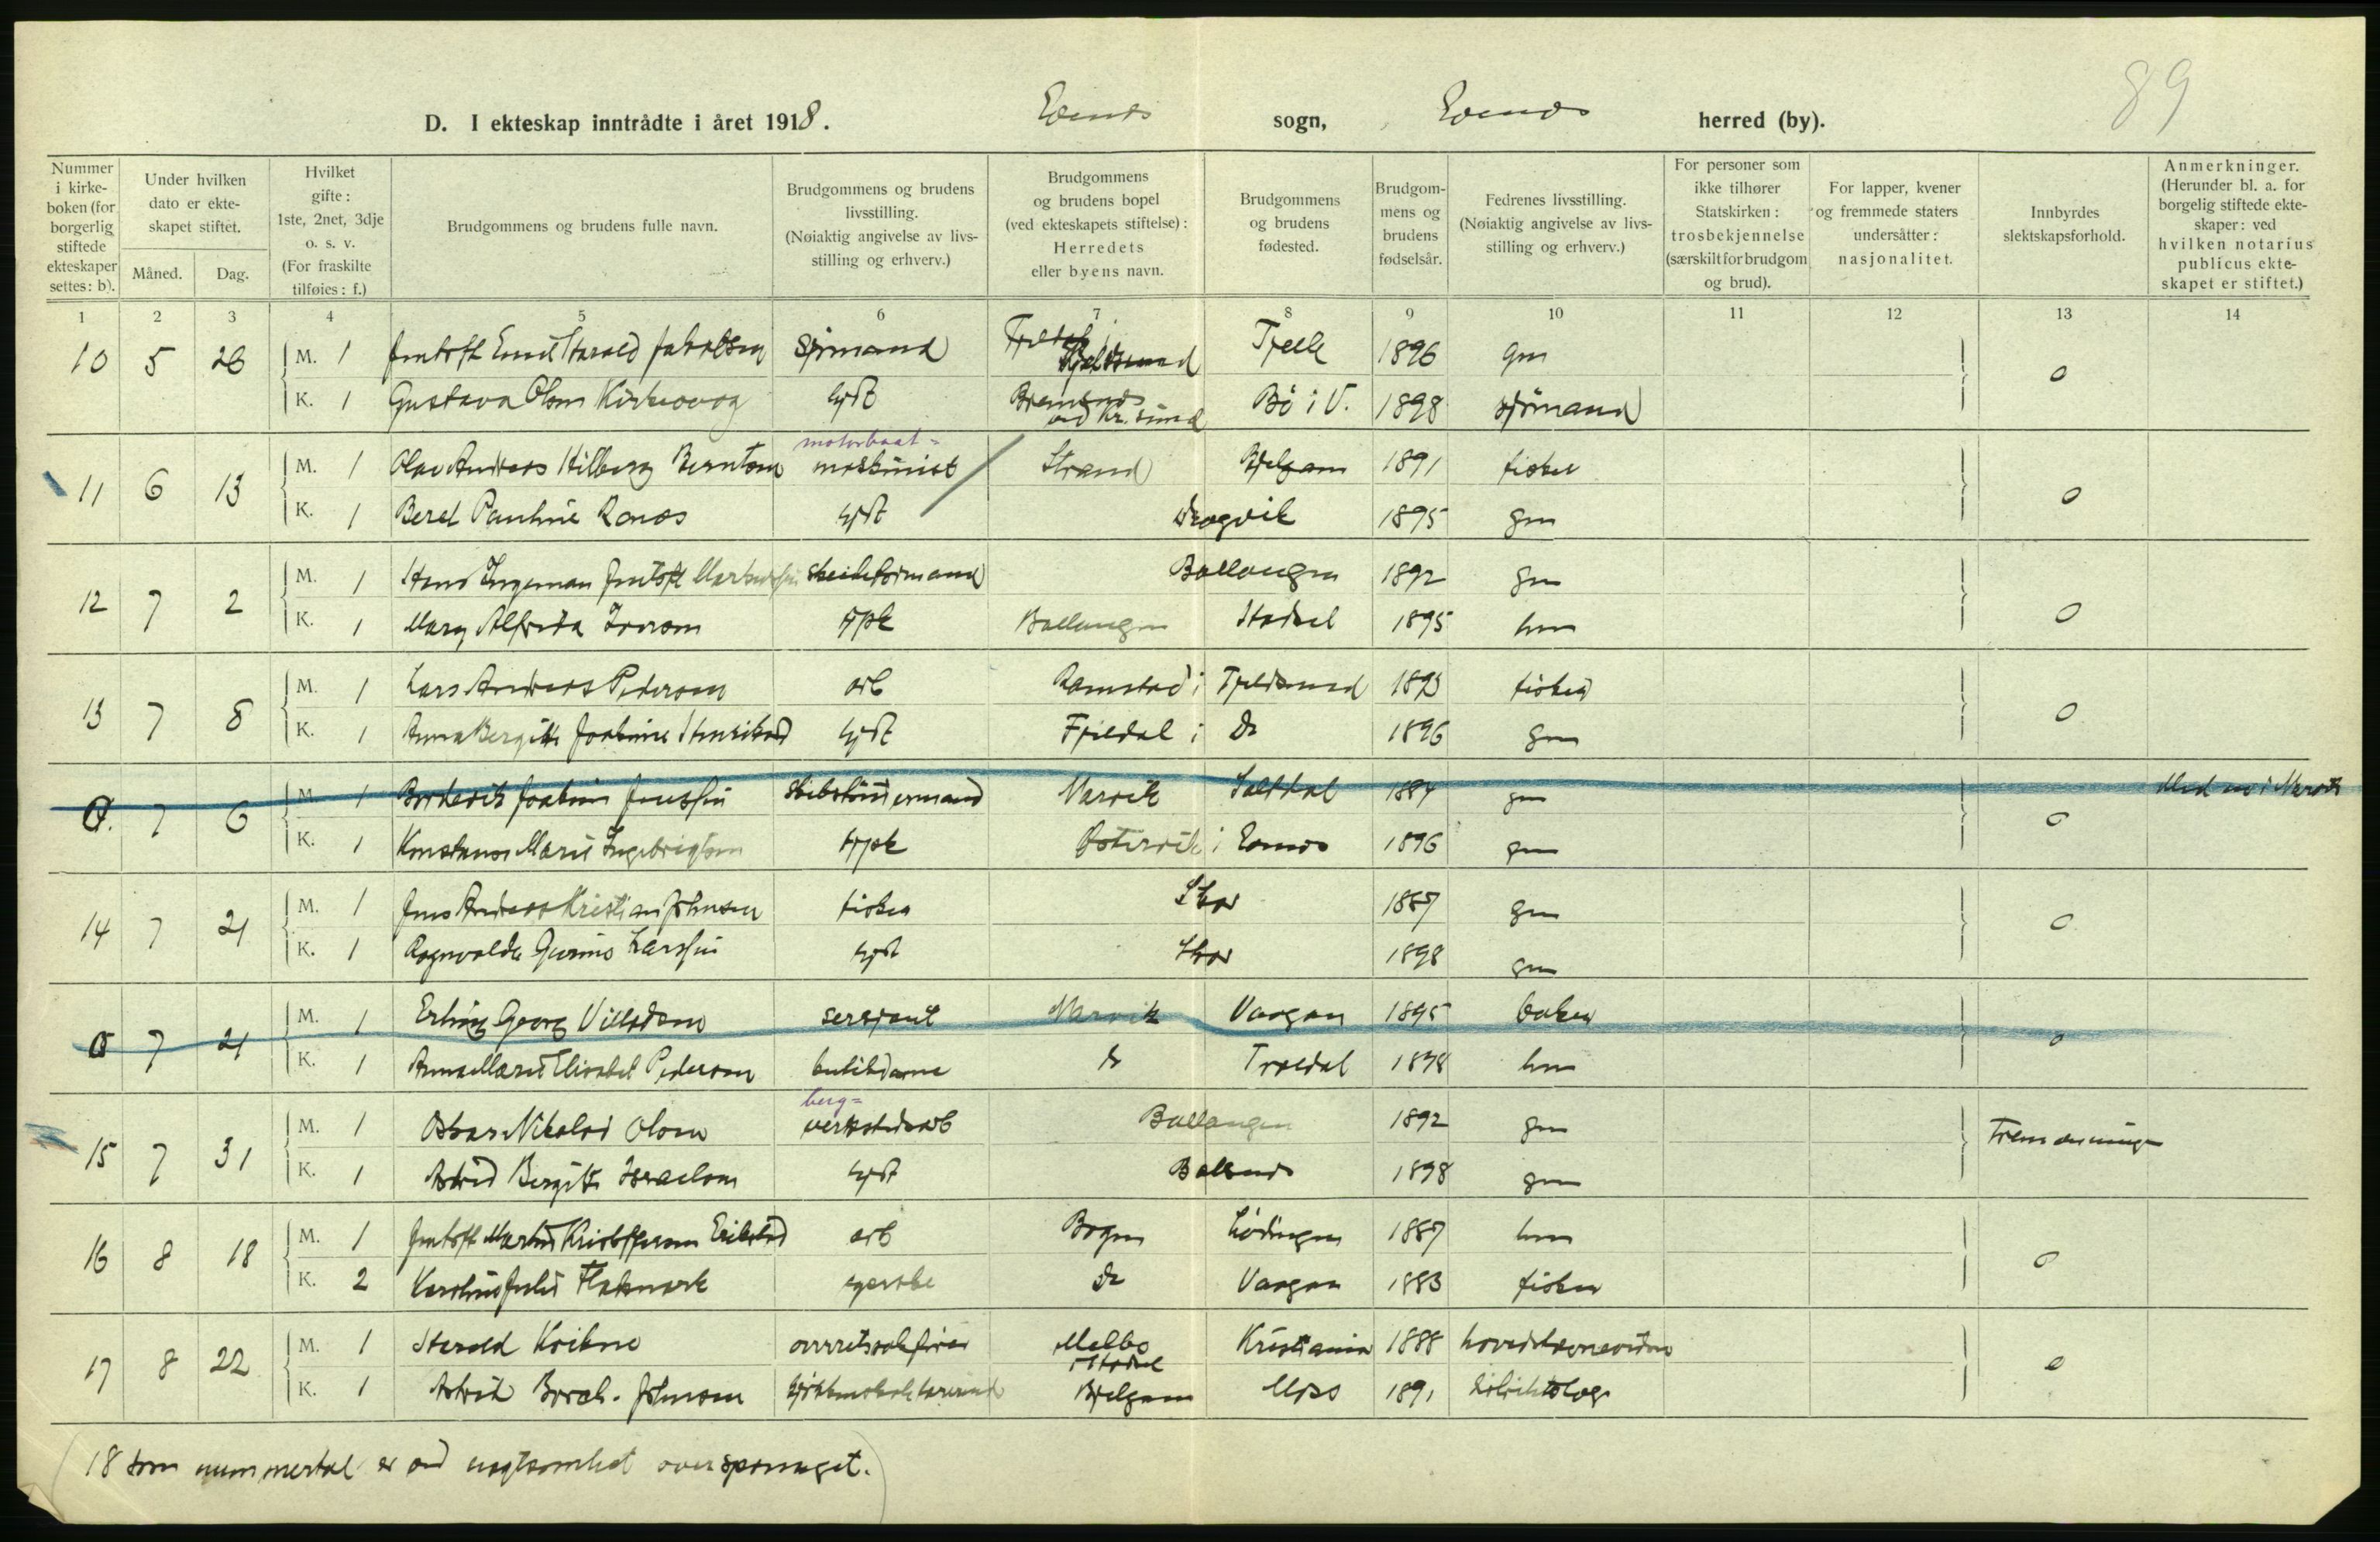 89
D. I ekteskap inntrådte i året 1918. Evenes sogn, Evenes herred (by).
Nummer i kirke-boken (for borgerlig stiftede ekteskaper settes: b).
Under hvilken dato er ekte-skapet stiftet.
Måned.
Dag.
Hvilket gifte: 1ste, 2net, 3dje o. s. v. (For fraskilte tilføies: f.)
Brudgommens og brudens fulle navn.
Brudgommens og brudens livsstilling. (Nøiaktig angivelse av livs-stilling og erhverv.)
Brudgommens og brudens bopel (ved ekteskapets stiftelse): Herredets eller byens navn.
Brudgommens og brudens fødested.
Brudgom-mens og brudens fødselsår.
Fedrenes livsstilling. (Nøiaktig angivelse av livs-stilling og erhverv.)
For personer som ikke tilhører Statskirken: trosbekjennelse (særskilt for brudgom og brud).
For lapper, kvener og fremmede staters undersåtter: nasjonalitet.
Innbyrdes slektskapsforhold.
Anmerkninger. (Herunder bl. a. for borgelig stiftede ekte-skaper: ved hvilken notarius publicus ekte-skapet er stiftet.)
1 2 3 4 5 6 7 8 9 10 11 12 13 14
10 5 26 M. 1 Jentoft Emil Harald Jakobsen sjømand Tjelle 1896 gm 0
K. 1 Gustava Olsen Kirkevaag hjdt Bremsnes ved Kr.sund Bø i V. 1898 sjømand
motorbaat=
11 6 13 M. 1 Olav Andreas Hilberg Berntsen maskinist Strand Bjelgam 1891 fisker 0
K. 1 Beret Pauline Ranes hjdt Dragvik 1895 gm
12 7 2 M. 1 Hans Ingeman Jentoft skeideformand Ballangen 1892 gm 0
K. 1 Mary Alfrida Iversen tjpk Ballangen Hadsel 1895 hm
13 7 8 M. 1 Lars Andreas Pedersen arb Ramstad i Tjeldsund 1893 fisker 0
K. 1 Anna Bergitte Joakime Henriksen hjdt Fjeldal i Do 1896 gm
0. 7 6 M. 1 Joakim Jenssen skibstømmermand Narvik Saltdal 1884 gm 0
K. 1 Konstanse Marie Ingebrigtsen tjpk Østervik i Evenes 1896 gm
14 7 21 M. 1 Jens Andreas Kristian Johnsen fisker 1887 gm 0
K. 1 Ragnvalda Larssen hjdt 1898 gm
0 7 21 M. 1 Erling Georg Villadsen sersjant Narvik Vaagan 1895 baker 0
K. 1 Anna Marie Elisabet Pedersen butikdame Do Traldal 1898 hm
berg=
15 7 31 M. 1 Oskar Nikolai Olsen verkstedsarb Ballangen 1892 gm Tremenninger
K. 1 Astrid Bergitte Israelsen hjdt Balsnes 1898 gm
16 8 18 M. 1 Jentoft Martin Kristoffersen Erikstad arb Bogen Lødingen 1887 hm 0
K. 2 Karoline Julie Flakmark Do Vaagan 1883 fisker
17 8 22 M. 1 Harald overretssakfører Melbo i Hadsel Kristiania 1888 0
K. 1 Astrid Borch-Johnsen Bjelgam Moss 1891 distriktslæge
(18 som nummertal er ved uagtsomhet oversprunget.)